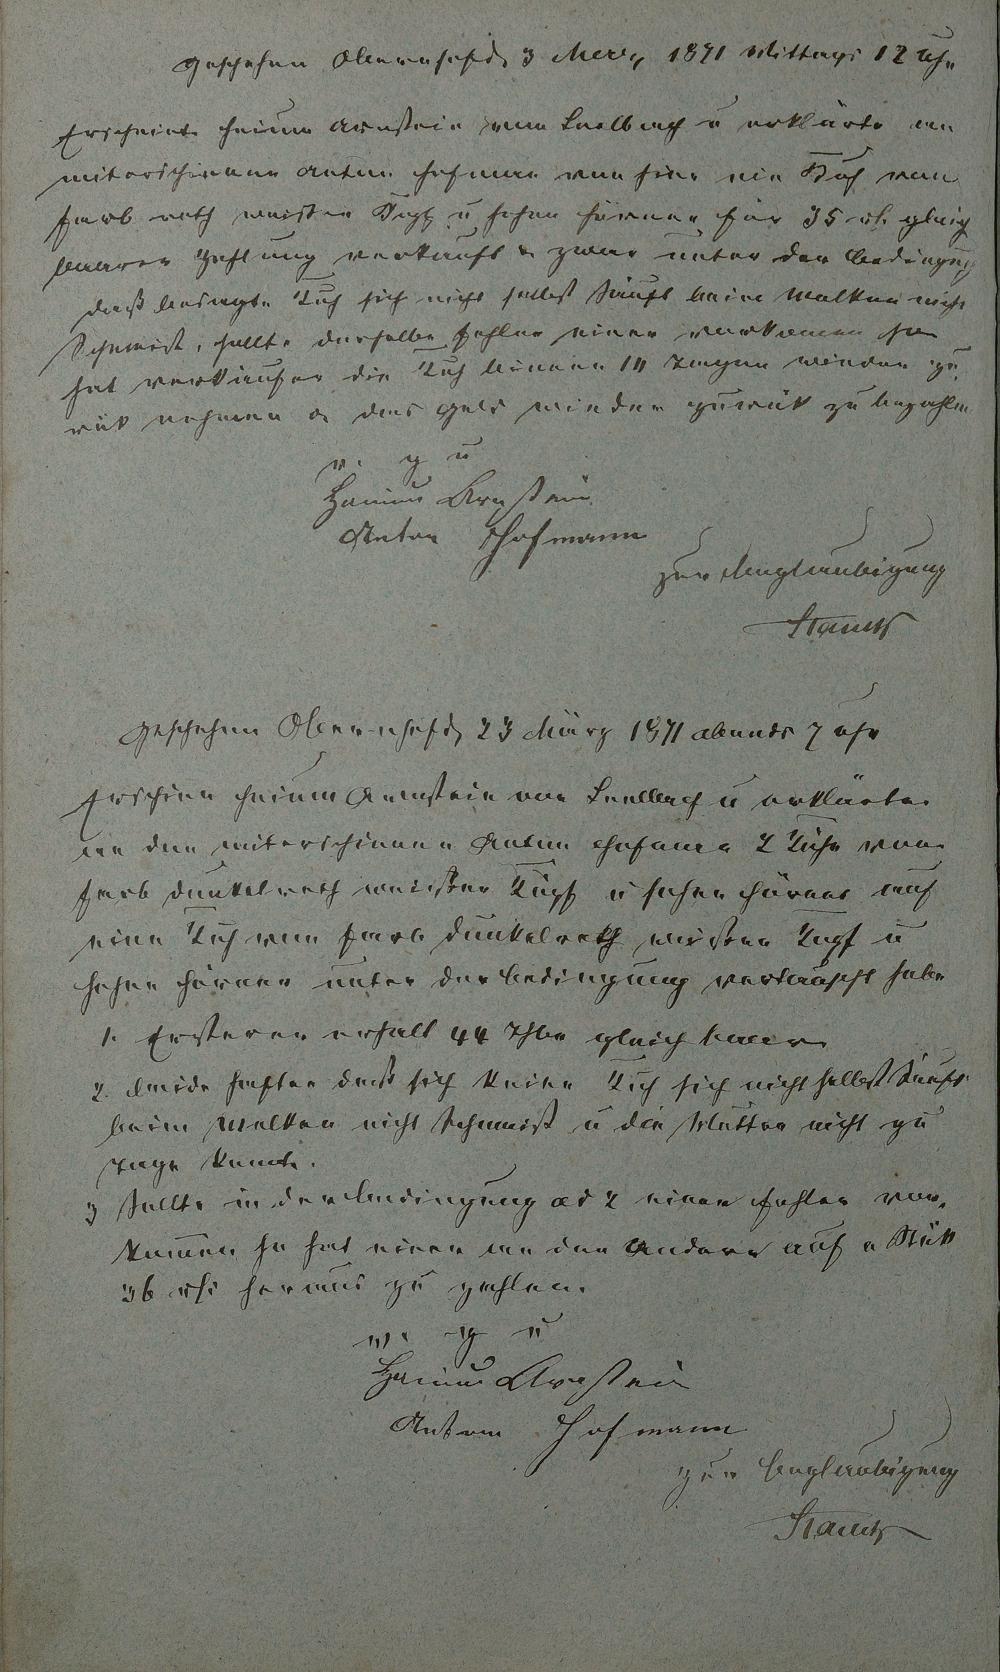 Geschehen Obernhsfd, 3 Merz 1871 Mittags 12 Uhr
Erscheint Heium Arnstein von Laelbach u erklärte an
miterschienene Anton Hofman von hier ein Kuh von
farb roth weißer Kopf u hohen Hörner für 35 rl. gleich
baarer Zahlung verkauft u zwar unter der Bedingung
daß besagte Kuh sich nicht selbst säuft beim Malken nicht
Schmeist, sollte derselbe Fehler einer vorkomen so
hat verkäufer die Kuh binnen 14 Tagen wieder zu
rük nehmen u das Geld wieder zurük zu bezahlen
v. g u
Haium Arnstein
Anton Hofmann
zur Beglaubigung
Geschehen Obernhsfd, 23 März 1871 abends 7 uhr
Erschien Heium Arnstein von Laelbach u erklärte
an den miterschienen Anton Hofman 2 Kühe von
farb dunkelroth weißer Kopf u hohen Hörner auf
eine Kuh von farb dunkelroth weißer Kopf u
hohen Hörner unter der bedingung vertauscht habe
1. Ersterer erhalt 44 Thlr gleich baar
2. Beide haften daß sich keine Kuh sich nicht selbst säuft
beim Malken nicht Schmeist u die Mutter nicht zu
Tage komt.
3 Sollte in der bedingung ad 2 einer Fehler vor,
komen so hat einer an den Andern auf e Stük
36 rl heraus zu zahlen.
v. g u
Haium Arnstein
Anton Hofmann
zur beglaubigung